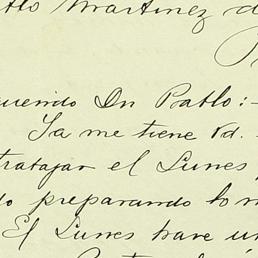 blo Martinez d
Querido Dn Pablo:-
Ya me tiene Vd.
tratajar el Lunes
do preparando lo m
El Lunes have un